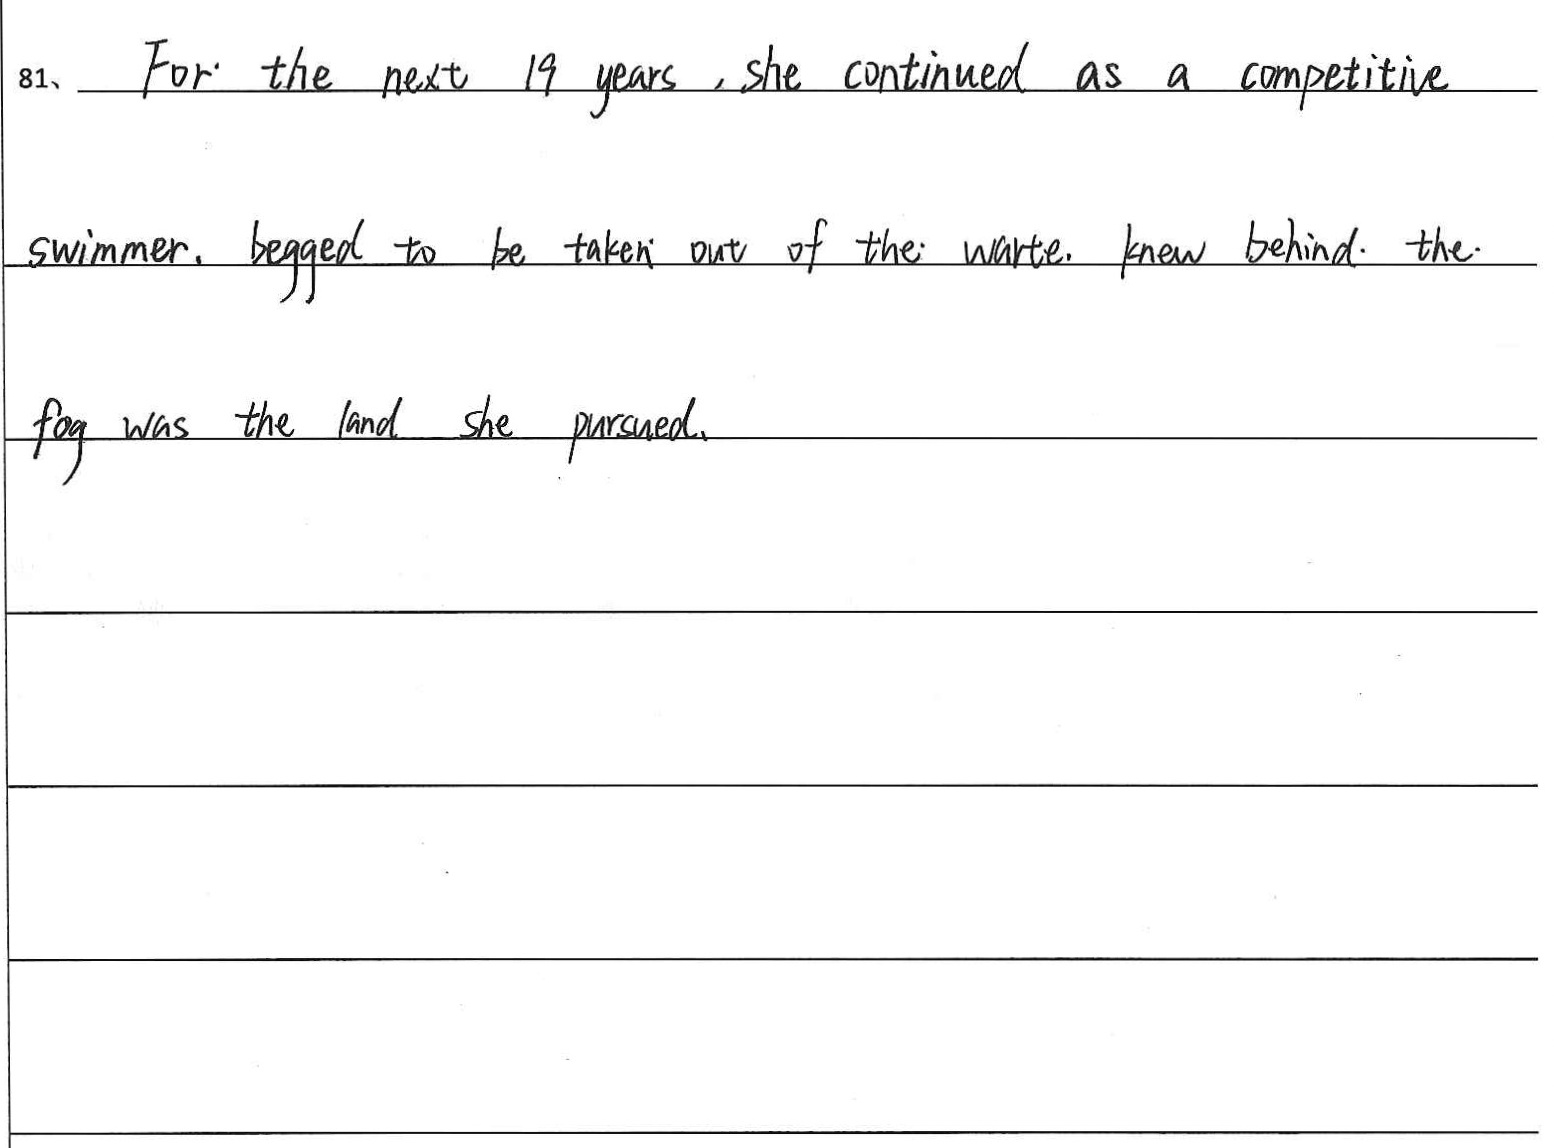 81、 For the next 19 years, she continued as a competitive
swimmer. begged to be taken out of the warte. knew behind. the
fog was the land she pursued.